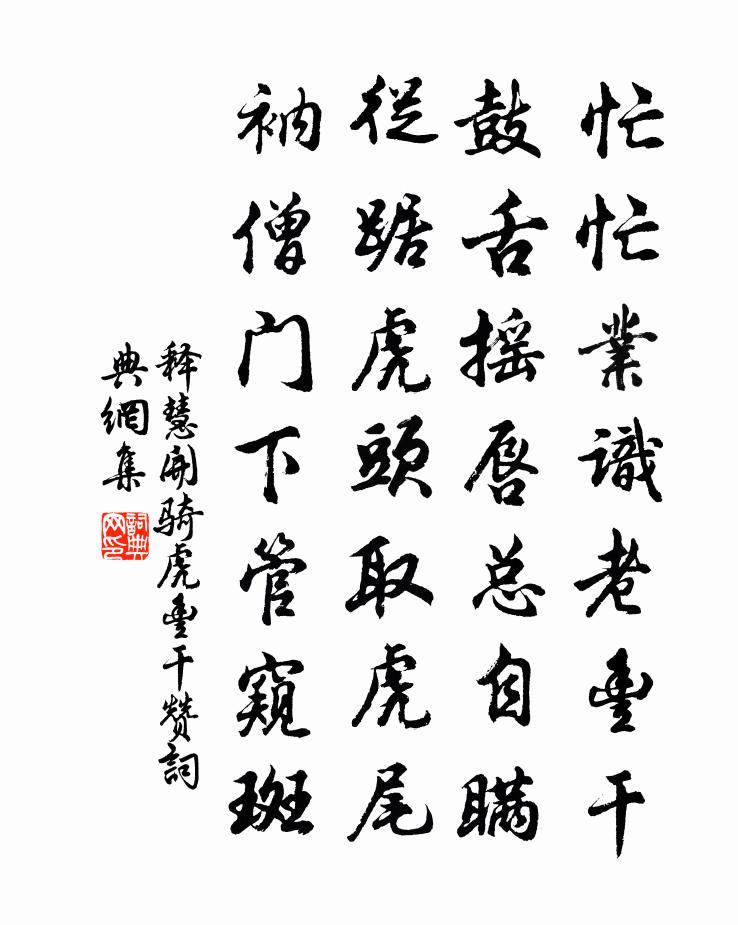 忙忙業識老豐干
鼓舌搖唇总自瞞
從踞虎頭取虎尾
衲僧门下管窺斑
释慧開骑虎豐干赞詞
典網集
詞典網印